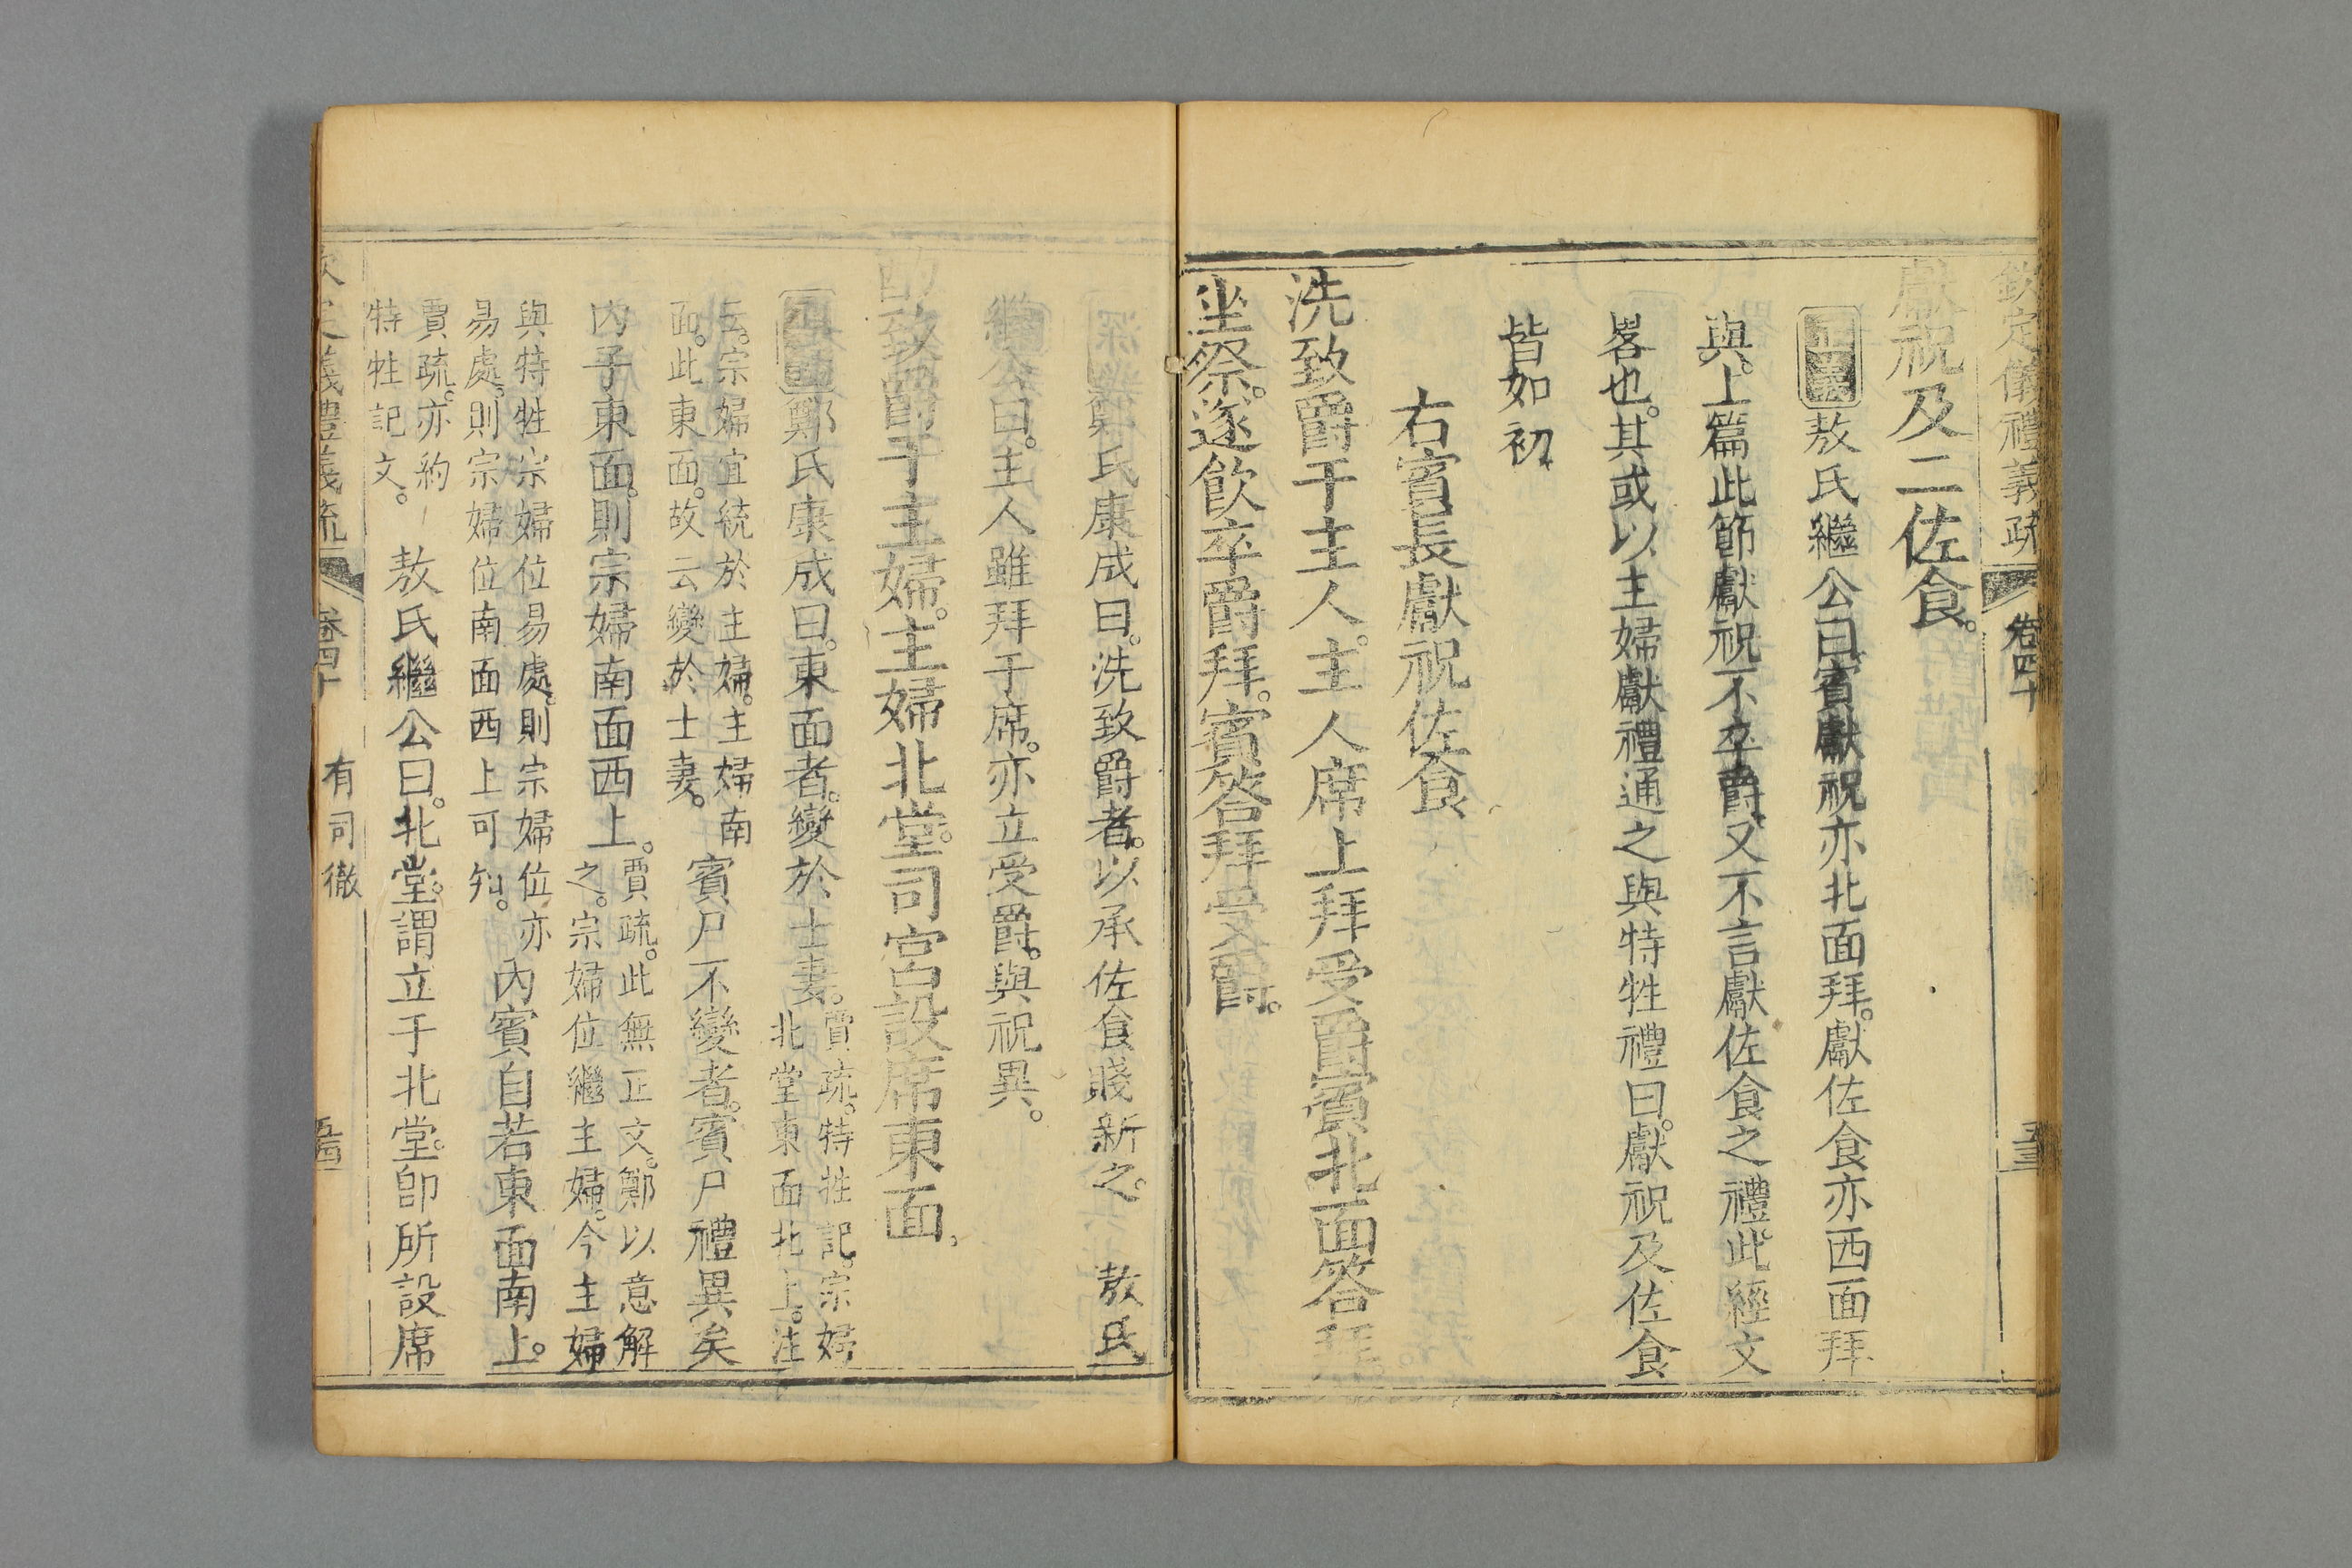 欽定儀禮義疏 卷四十 五三
獻祝及二佐食。
正義敖氏繼公曰賓獻祝亦北面拜。獻佐食亦西面拜
與。上篇此節獻祝不卒爵又不言獻佐食之禮。此經文
畧也。其或以主婦獻禮通之與特牲禮曰。獻祝及佐食
皆如初
右賓長獻祝佐食
洗致爵于主人。主人席上拜受爵賓北面答拜
坐祭。遂飲卒爵拜。賓答拜受爵。
鄭氏康成曰。洗致爵者。以承佐食賤新之。 敖氏
繼公曰。主人雖拜于席。亦立受爵。與祝異。
酌致爵于主婦。主婦北堂。司宮設席東面。
正義鄭氏康成曰。東面者。變於士妻。
賈疏。特牲記。宗婦
北堂東面北上。注
云。宗婦宜統於主婦。主婦南
面。此東面。故云變於士妻。
賓尸不變者。賓尸禮異矣
內子東面。則宗婦南面西上。
賈疏。此無正文。鄭以意解
之。宗婦位繼主婦。今主婦
與特牲宗婦位易處。則宗婦位亦
易處。則宗婦位南面西上可知。
內賓自若東面南上。
賈疏。亦約
特牲記文。
敖氏繼公曰。北堂。謂立于北堂。卽所設席
欽定儀禮義疏 卷四十 有司徹 五四